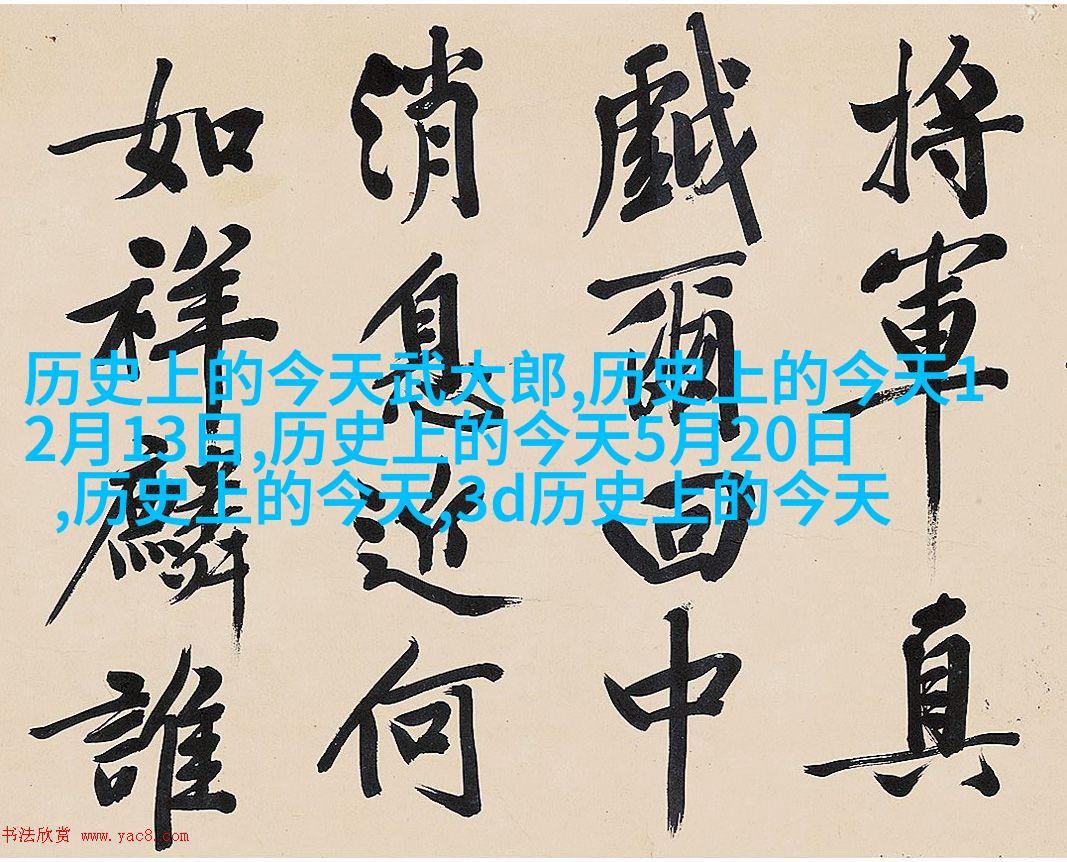 將軍真
戲爾回中
消息近何
如祥麟誰
历史上的今天武大郎,历史上的今天1
2月13日,历史上的今天5月20日
,历史上的今天,3d历史上的今天
书法欣赏 www.yac8.com